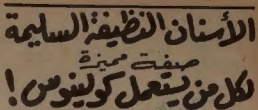 الأسنان النظيفة السليمة
صفة مميزة
لكل من يستعمل كولينوس !